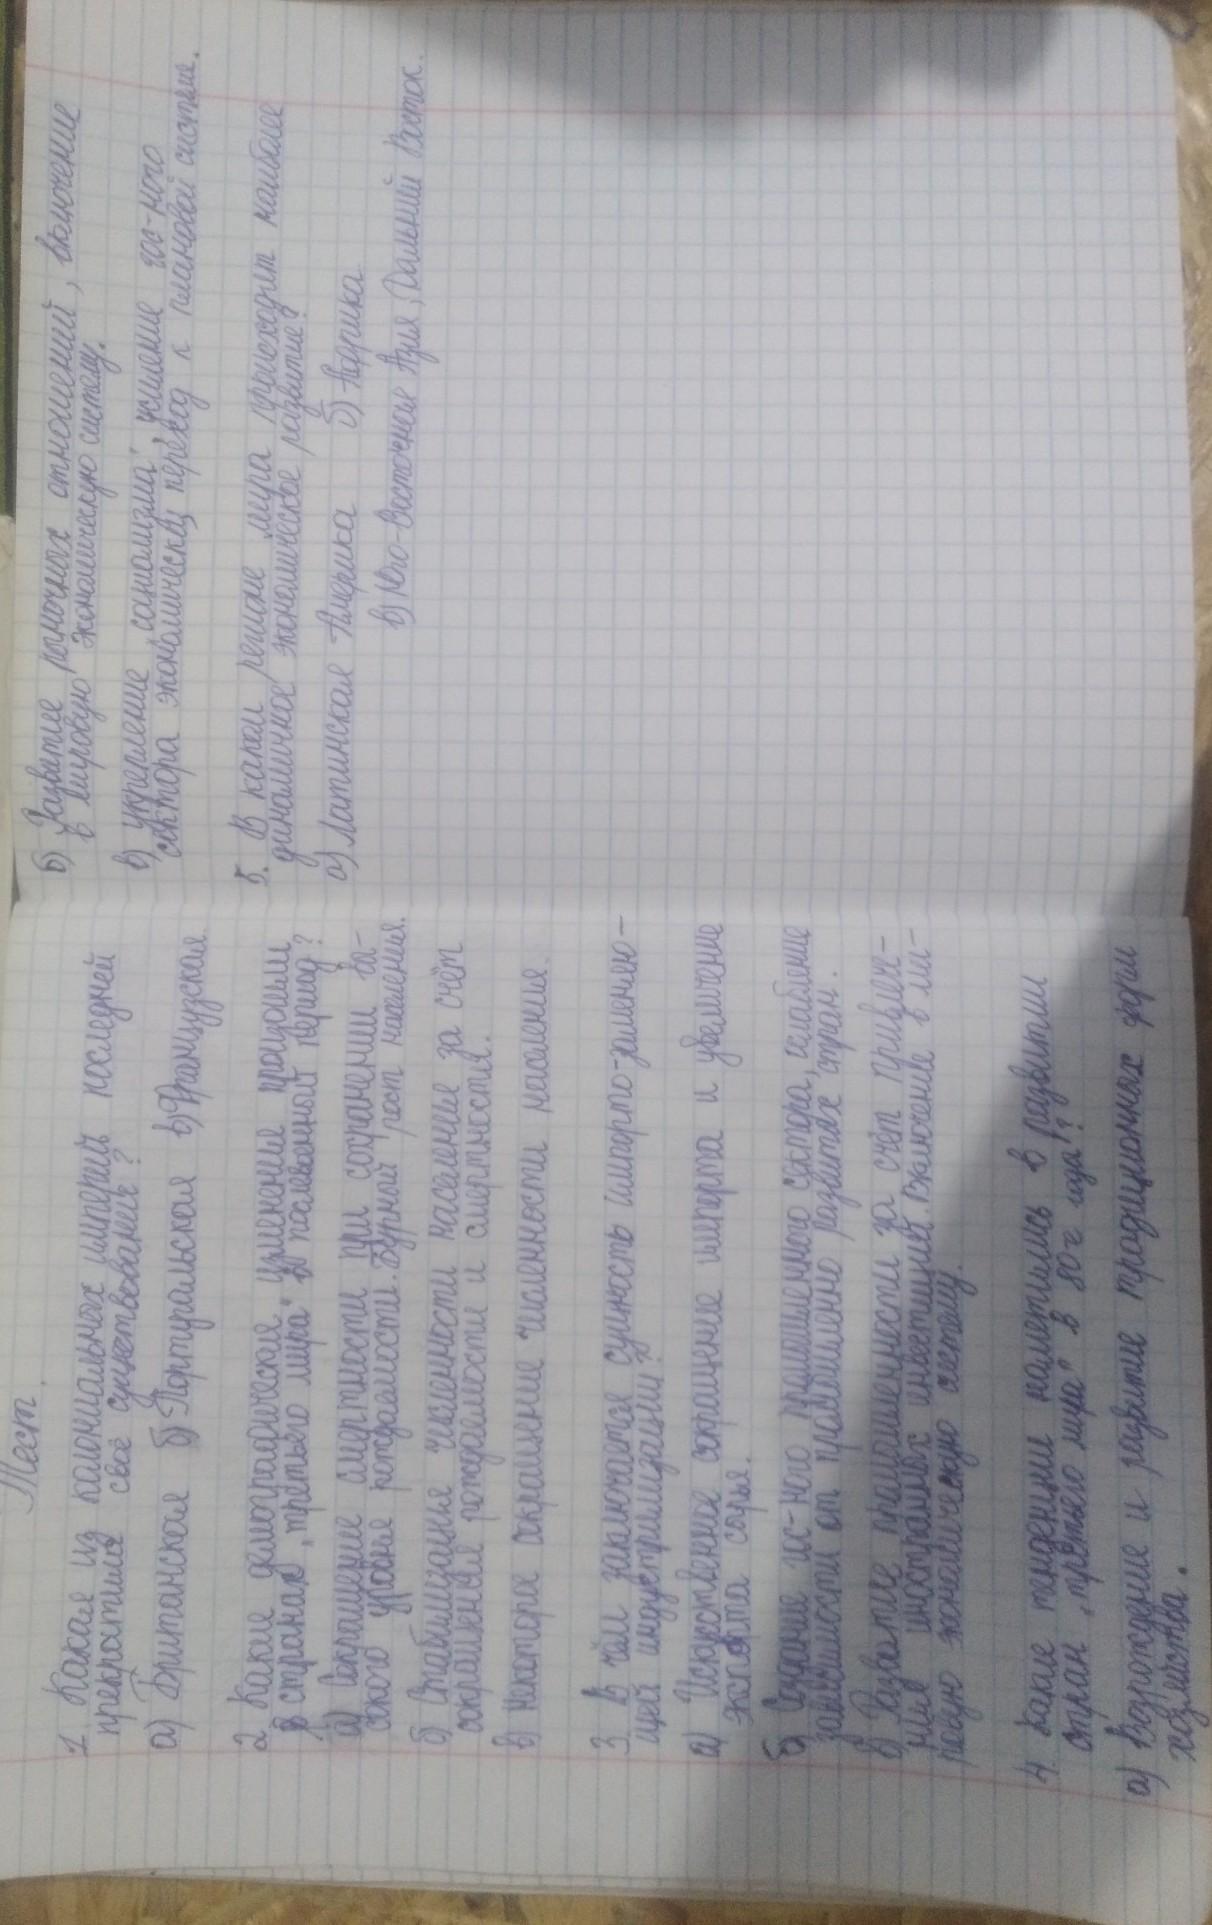 Тест.
1. Какая из колониальных империй последней
прекратила своё существование?
а) Британская б) Португальская в) Французская
2. Какие демографические изменения произошли
в странах „третьего мира" в послевоенный период?
а) Сокращение смертности при сохранении вы-
сокого уровня рождаемости. Бурный рост населения.
б) Стабилизация численности населенье за счёт
сокращения рождаемости и смертности.
в) Некоторое сокращение численности населения.
3. В чём заключается сущность импорто-замещаю-
щей индустриализации?
а) Искусственное сокращение импорта и увеличение
экспорта сырья.
б) Создание гос-ного промышленного сектора, ослабление
зависимости от промышленно развитых стран.
в) Развитие промышленности за счёт привлече-
ния иностранных инвестиций. Включение в ми-
ровую экономическую систему.
4. Какие тенденции наметились в развитии
стран „третьего мира" в 80-е года?
а) Возрождение и развитие традиционных форм
хозяйства.
б) Развитие рыночных отношений, включение
в мировую экономическую систему.
в) укрепление „социализма", усиление гос-ного
сектора экономически, переход к плановой системе.
5. В каком регионе мира происходит наиболее
динамичное экономическое развитие?
а) Латинская Америка б) Африка
в) Юго-Восточная Азия, Дальний Восток.